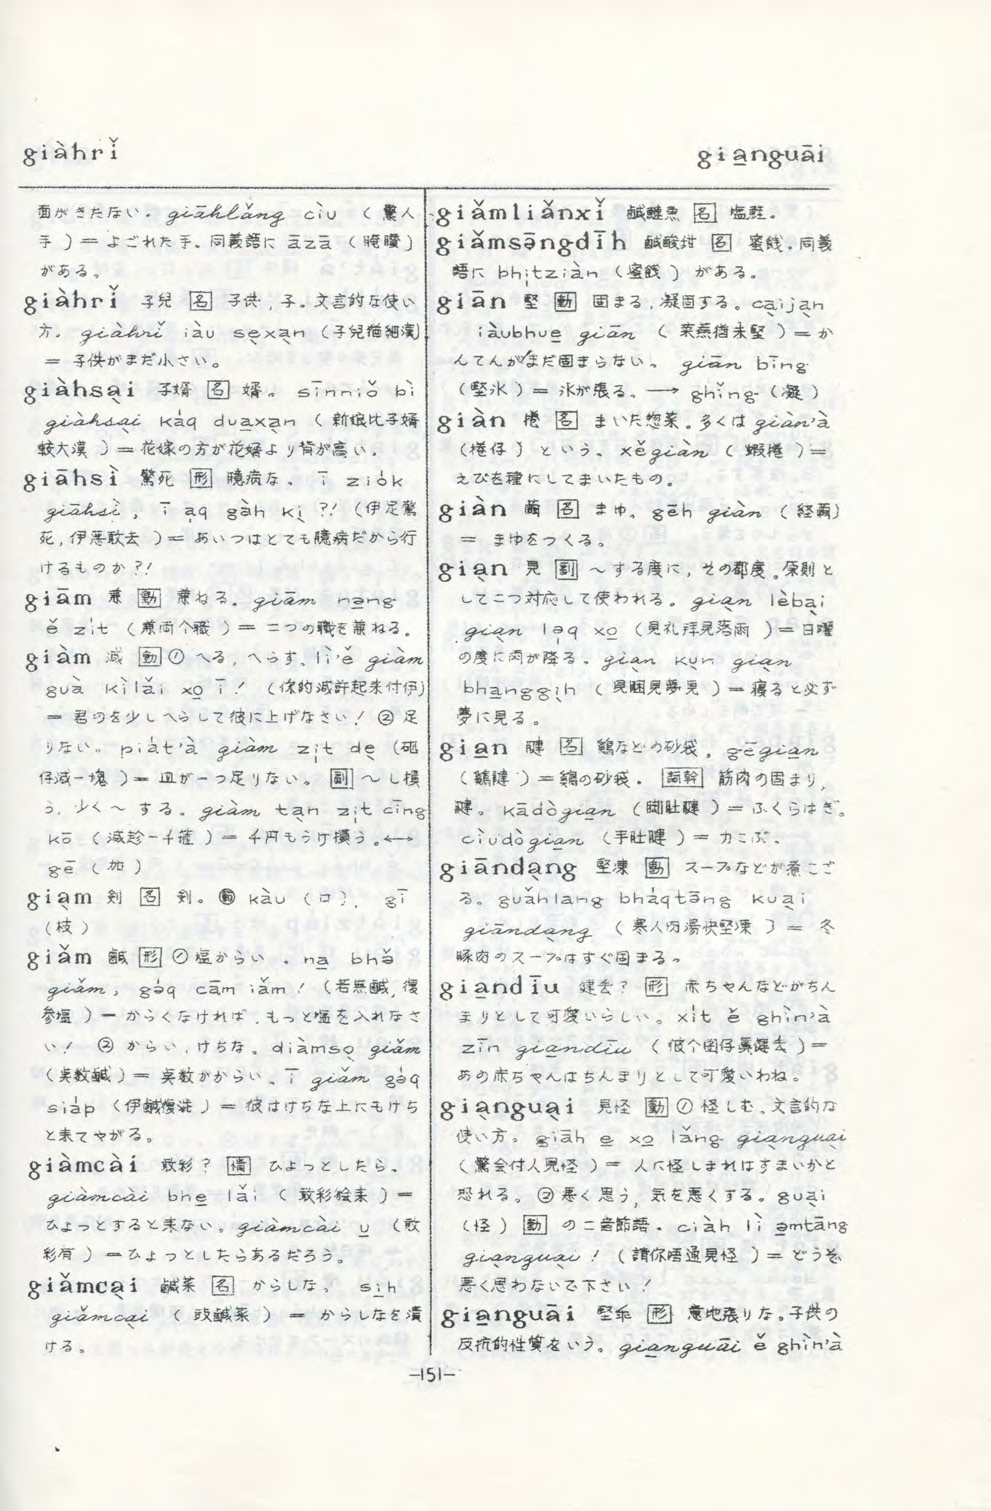 giàhrǐ
gia̠nguāi
面がきたない。giāhlǎng cìu (驚人
手)=よごれた手。同義語に āzā (腌臢)
がある。
giàhrǐ 子兒 名 子供,子。文言的な使い
方。giàhrǐ iàu sẹxạn (子兒猶細漢)
=子供がまだ小さい。
giàhsại 子婿 名 婿。sīnniǒ bì
giàhsại káq duạxạn (新娘比子婿
較大漢)=花嫁の方が花婿より背が高い。
giāhsì 驚死 形 臆病な。ī ziók
giāhsì, ī ạq gàh kị ?! (伊足驚
死,伊惡敢去)=あいつはとても臆病だから行
けるものか?!
giām 兼 動 兼ねる。giām nə̄ng
ě zı̍t (兼両个職)=二つの職を兼ねる。
giàm 減 動 ① へる,へらす。lì'ě giàm
guà kìlǎi xo̠ ī! (你的減許起来付伊)
=君のを少しへらして彼に上げなさい! ② 足
りない。piát'à giàm zı̍t dẹ (砥
仔減一塊)=皿が一つ足りない。副 〜し損
う,少く〜する。giàm tạn zı̍t cīng
kō (減趁一千箍)=千円もうけ損う。⟷
gē (加)
giạm 剣 名 剣。動 kàu (口), gī
(枝)
giǎm 鹹 形 ① 塩からい。na̠ bhə̌
giǎm, gə́q cām iǎm! (若無鹹,復
参塩)=からくなければ,もっと塩を入れなさ
い! ② からい,けちな。diàmsọ giǎm
(点数鹹)=点数がからい。ī giǎm gə́q
siáp (伊鹹復澁)=彼はけちな上にもけち
と来てやがる。
giàmcài 敢彩? 情 ひょっとしたら。
giàmcài bhe̠ lǎi (敢彩絵来)=
ひょっとすると来ない。giàmcài u̠ (敢
彩有)=ひょっとしたらあるだろう。
giǎmcại 鹹菜 名 からしな。si̠h
giǎmcại (豉鹹菜)=からしなを漬
ける。
giǎmliǎnxǐ 鹹鰱魚 名 塩鮭。
giǎmsə̄ngdīh 鹹酸甘 名 蜜餞。同義
語に bhı̍tziàn (蜜餞)がある。
giān 堅 動 固まる,凝固する。cạijạn
iàubhue̠ giān (菜燕猶未堅)=か
んてんがまだ固まらない。giān bīng
(堅氷)=氷が張る。⟶ ghǐng (凝)
giàn 捲 名 まいた惣菜。多くは giàn'à
(捲仔)という。xěgiàn (蝦捲)=
えびを種にしてまいたもの。
giàn 繭 名 まゆ。gēh giàn (経繭)
=まゆをつくる。
giạn 見 副 〜する度に,その都度。原則と
して二つ対応して使われる。giạn lèbại
giạn lə̍q xo̠ (見礼拝見落雨)=日曜
の度に雨が降る。giạn kụn giạn
bha̠nggịh (見睏見夢見)=寝ると必ず
夢に見る。
gia̠n 腱 名 鶏などの砂袋。gēgia̠n
(鶏腱)=鶏の砂袋。詞幹 筋肉の固まり,
腱。kādògia̠n (脚肚腱)=ふくらはぎ。
cìudògia̠n (手肚腱)=力こぶ。
giāndạng 堅凍 動 スープなどが煮こご
る。guǎhlang bháqtāng kuại
giāndạng (寒人肉湯快堅凍)=冬
豚肉のスープはすぐ固まる。
gia̠ndīu 健丢? 形 赤ちゃんなどがちん
まりとして可愛いらしい。xít ě ghìn'à
zīn gia̠ndīu (彼个囝仔真健丢)=
あの赤ちゃんはちんまりとして可愛いわね。
giạnguại 見怪 動 ① 怪しむ。文言的な
使い方。giāh e̠ xo̠ lǎng giạnguại
(驚会付人見怪)=人に怪しまれはすまいかと
恐れる。② 悪く思う,気を悪くする。guại
(怪)動 の二音節語。ciàh lì əmtāng
giạnguại! (請你唔通見怪)=どうぞ
悪く思わないで下さい!
gia̠nguāi 堅乖 形 意地張りな。子供の
反抗的性質をいう。gia̠nguāi ě ghìn'à
—151—